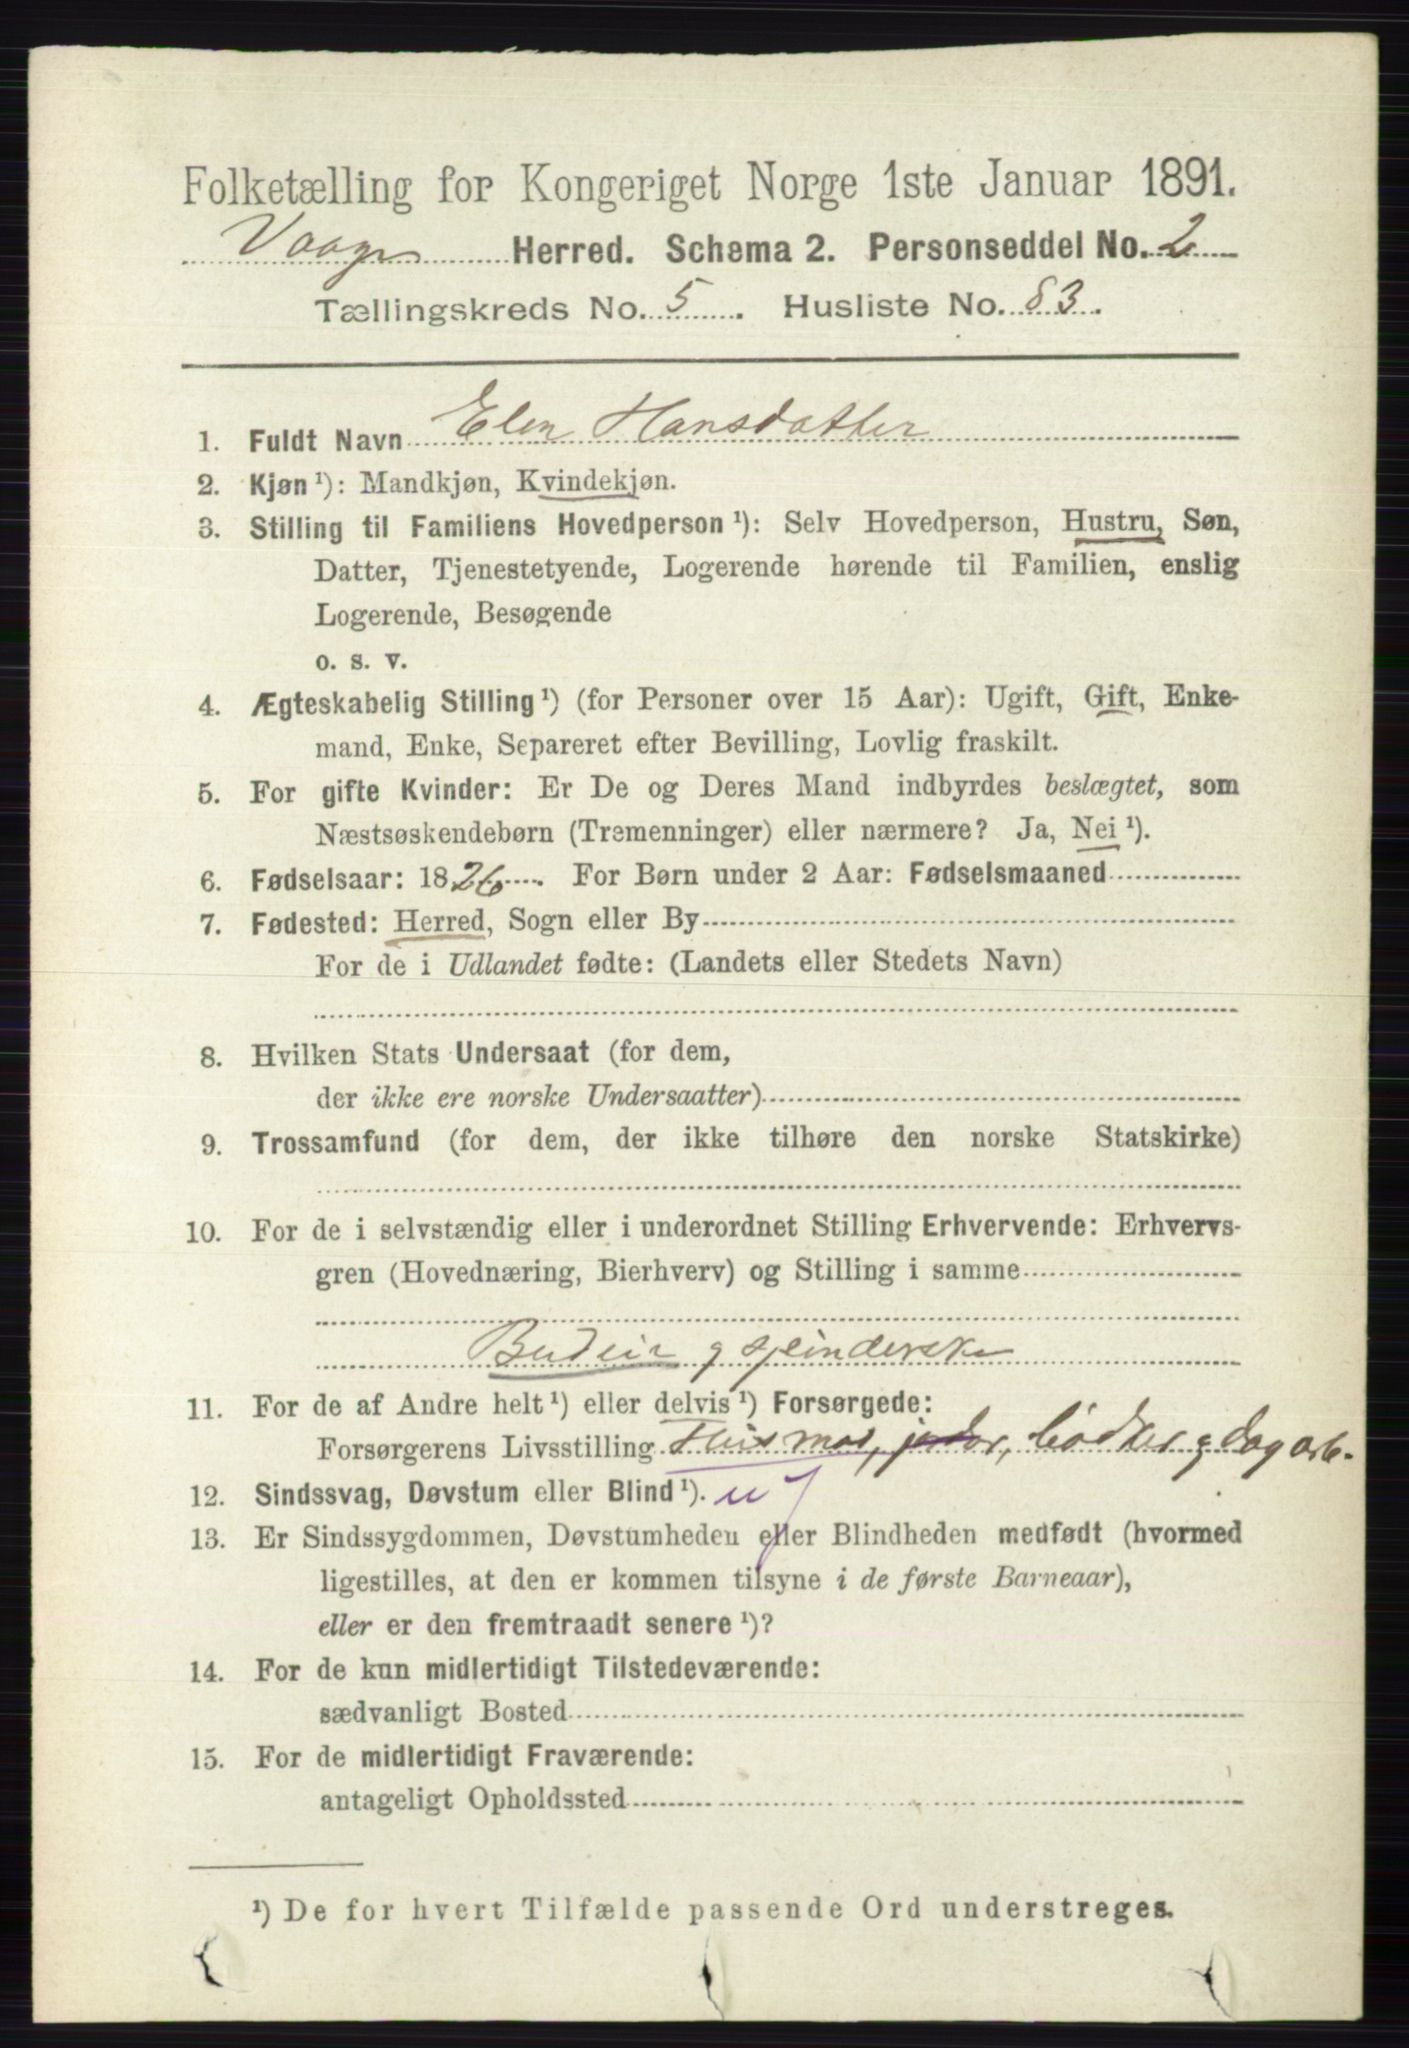 Folketælling for Kongeriget Norge 1ste Januar 1891.
Vaage Herred. Schema 2. Personseddel No. 2
Tællingskreds No. 5. Husliste No. 83.
1. Fuldt Navn Elen Hansdatter
2. Kjøn ¹): Mandkjøn, Kvindekjøn.
3. Stilling til Familiens Hovedperson ¹): Selv Hovedperson, Hustru, Søn,
Datter, Tjenestetyende, Logerende hørende til Familien, enslig
Logerende, Besøgende
o. s. v.
4. Ægteskabelig Stilling ¹) (for Personer over 15 Aar): Ugift, Gift, Enke-
mand, Enke, Separeret efter Bevilling, Lovlig fraskilt.
5. For gifte Kvinder: Er De og Deres Mand indbyrdes beslægtet, som
Næstsøskendebørn (Tremenninger) eller nærmere? Ja, Nei ¹).
6. Fødselsaar: 1826. For Børn under 2 Aar: Fødselsmaaned
7. Fødested: Herred, Sogn eller By
For de i Udlandet fødte: (Landets eller Stedets Navn)
8. Hvilken Stats Undersaat (for dem,
der ikke ere norske Undersaatter)
9. Trossamfund (for dem, der ikke tilhøre den norske Statskirke)
10. For de i selvstændig eller i underordnet Stilling Erhvervende: Erhvervs-
gren (Hovednæring, Bierhverv) og Stilling i samme
Budeie g spinderske
11. For de af Andre helt ¹) eller delvis ¹) Forsørgede:
Forsørgerens Livsstilling Husmad, bødker g dagarb.
12. Sindssvag, Døvstum eller Blind ¹).
13. Er Sindssygdommen, Døvstumheden eller Blindheden medfødt (hvormed
ligestilles, at den er kommen tilsyne i de første Barneaar),
eller er den fremtraadt senere ¹)?
14. For de kun midlertidigt Tilstedeværende:
sædvanligt Bosted
15. For de midlertidigt Fraværende:
antageligt Opholdssted
¹) De for hvert Tilfælde passende Ord understreges.